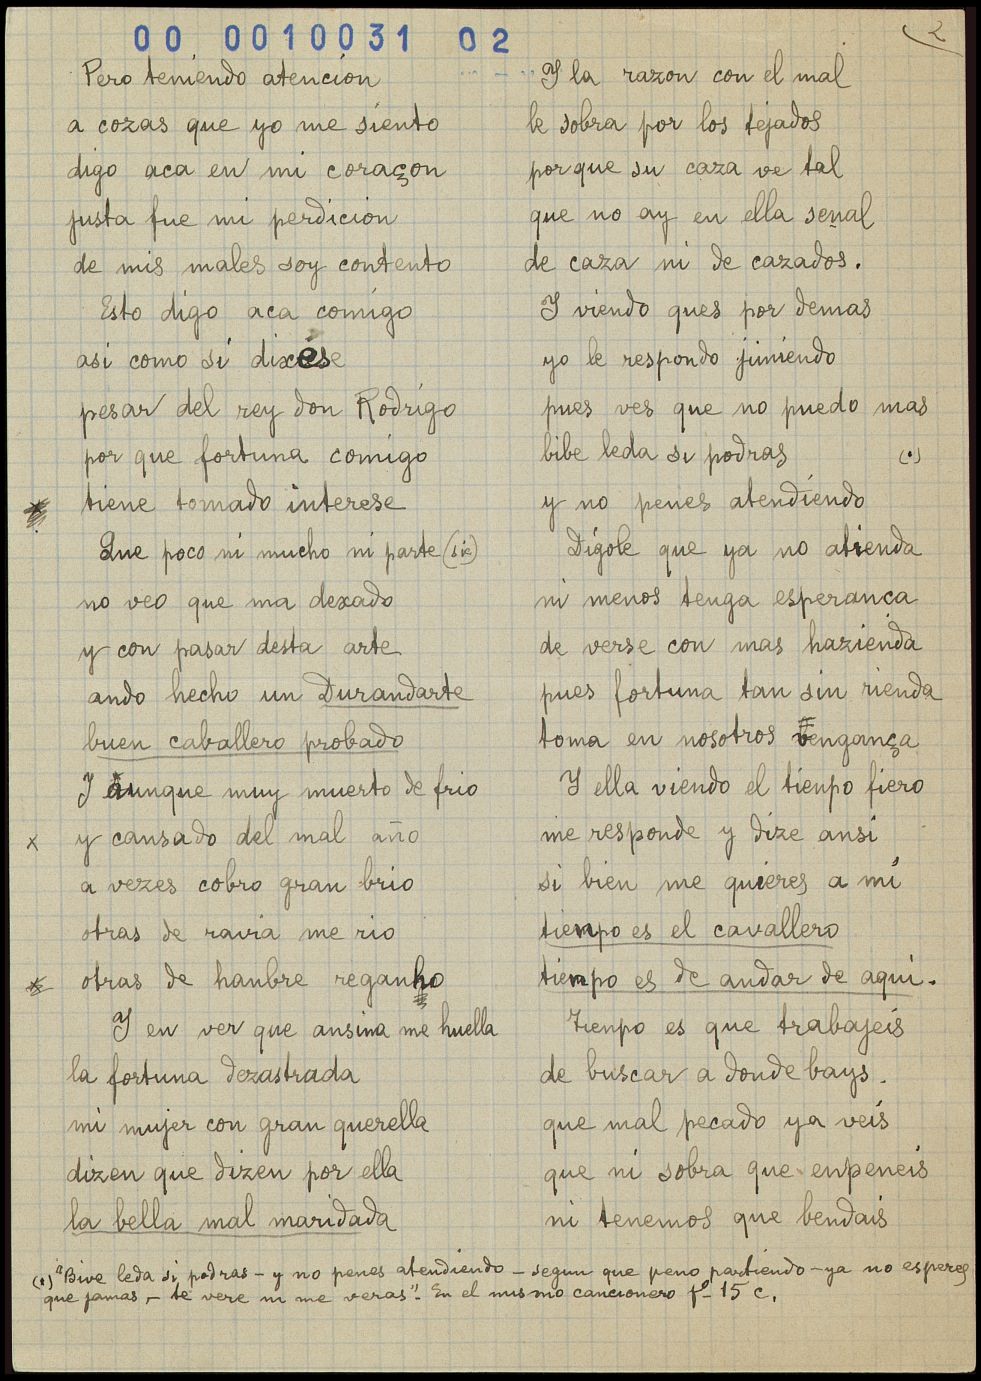 00 0010031 02
2
Pero teniendo atencion
a cozas que yo me siento
digo aca en mi coraçon
justa fue mi perdicion
de mis males soy contento
Esto digo aca comigo
asi como si dixese
pesar del rey don Rodrigo
por que fortuna comigo
tiene tomado interese
Que poco ni mucho ni parte (sic)
no veo que ma dexado
y con pasar desta arte
ando hecho un Durandarte
buen caballero probado
Y aunque muy muerto de frio
x y cansado del mal año
a vezes cobro gran brio
otras de ravia me rio
otras de hanbre reganho
Y en ver que ansina me huella
la fortuna dezastrada
mi mujer con gran querella
dizen que dizen por ella
la bella mal maridada
Y la razon con el mal
le sobra por los tejados
porque su caza ve tal
que no ay en ella señal
de caza ni de cazados.
Y viendo ques por demas
yo le respondo jimiendo
pues ves que no puedo mas
bibe leda si podras (•)
y no penes atendiendo
Digole que ya no atienda
ni menos tenga esperanca
de verse con mas hazienda
pues fortuna tan sin rienda
toma en nosotros vengança
Y ella viendo el tienpo fiero
me responde y dize ansi
si bien me quieres a mi
tienpo es el cavallero
tienpo es de andar de aqui.
Tienpo es que trabajeis
de buscar a donde bays.
que mal pecado ya veis
que ni sobra que enpeneis
ni tenemos que bendais
(•) "Bive leda si podras – y no penes atendiendo – segun que peno partiendo – ya no esperes
que jamas, – te vere ni me veras". En el mismo cancionero fº 15 c.